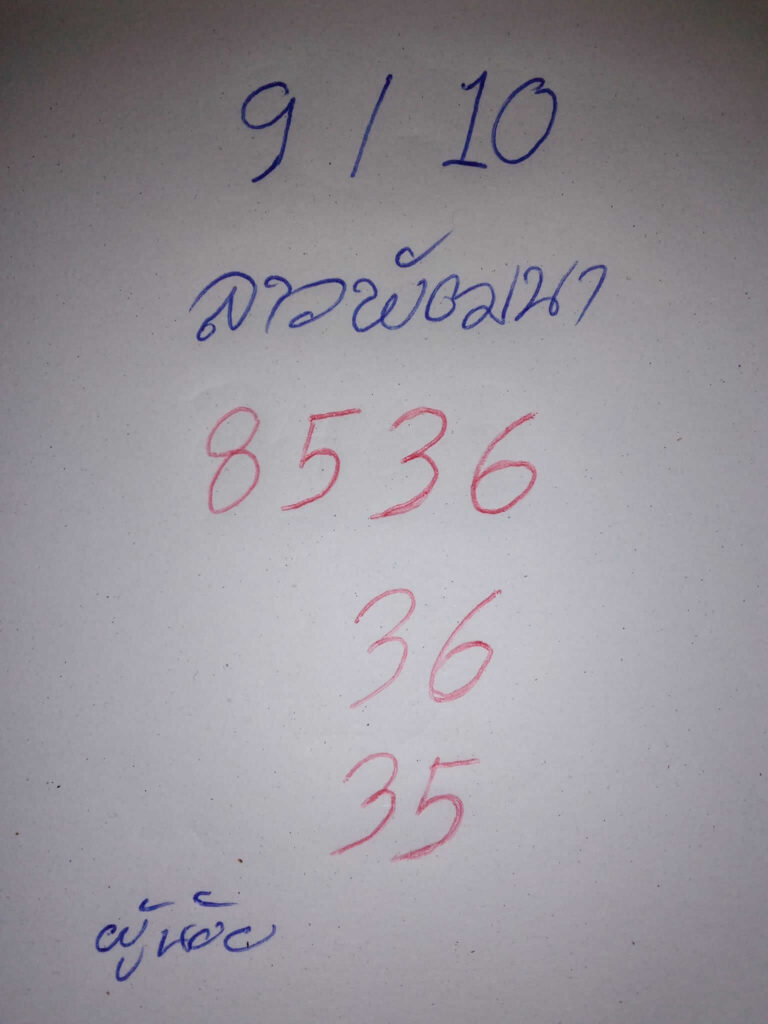 9 / 10
ลาวพัฒนา
8536
36
35
ผู้น้อย